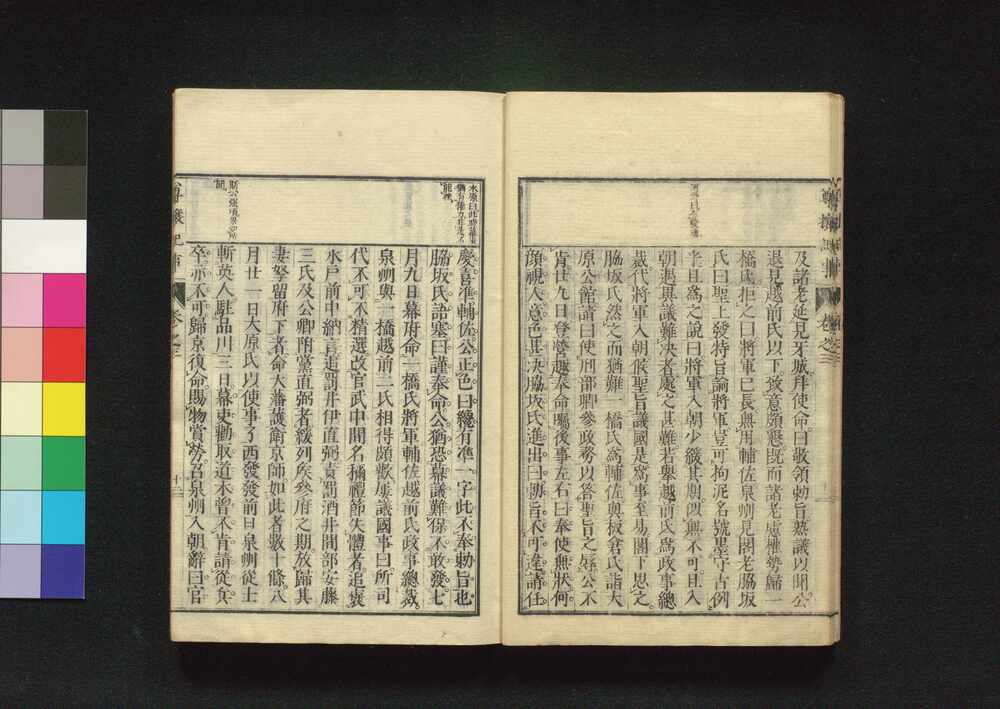 及諸老延見牙城拜使命曰敬領勅旨熟議以聞公
退見越前氏以下致意頗懇既而諸老慮權勢歸一
橋氏拒之曰將軍已長無用輔佐泉州見閣老脇坂
氏曰聖上發特旨論將軍豈可拘泥名號墨守古例
朝遇異議難決者處之甚難若舉越前氏為政事總
裁代將軍入朝候聖旨議國是為事至易閣下思之
脇坂氏然之而猶難一橋氏為輔佐與板倉氏詣大
原公館請曰使刑部卿參政務以答聖旨之辱公不
肯廿九日登營趣奉命囑後事左右曰奉使無狀何
顏視人意色甚決脇坂氏進出曰勅旨不可違請任
慶喜准輔佐公正色曰纔有准一字此不奉勅旨也
脇坂氏語塞曰謹奉命公猶恐幕議難保不敢發七
月九日幕府命一橋氏將軍輔佐越前氏政事總裁
泉州與一橋越前二氏相得頗歡屢議國事曰所司
代不可不精選改官武中間名稱禮節失體者追褒
水戶前中納言追罰井伊直弼責罰酒井間部安藤
三氏及公卿附黨直弼者緩列侯參府之期放歸其
妻孥留府下者命大藩護衛京師如此者數十條八
月廿一日大原氏以使事了西發發前日泉州從士
斬英人駐品川三日幕吏勸取道木曾不肯請從兵
卒亦不可歸京復命賜物賞勞召泉州入朝辭曰官
卷之三
十二